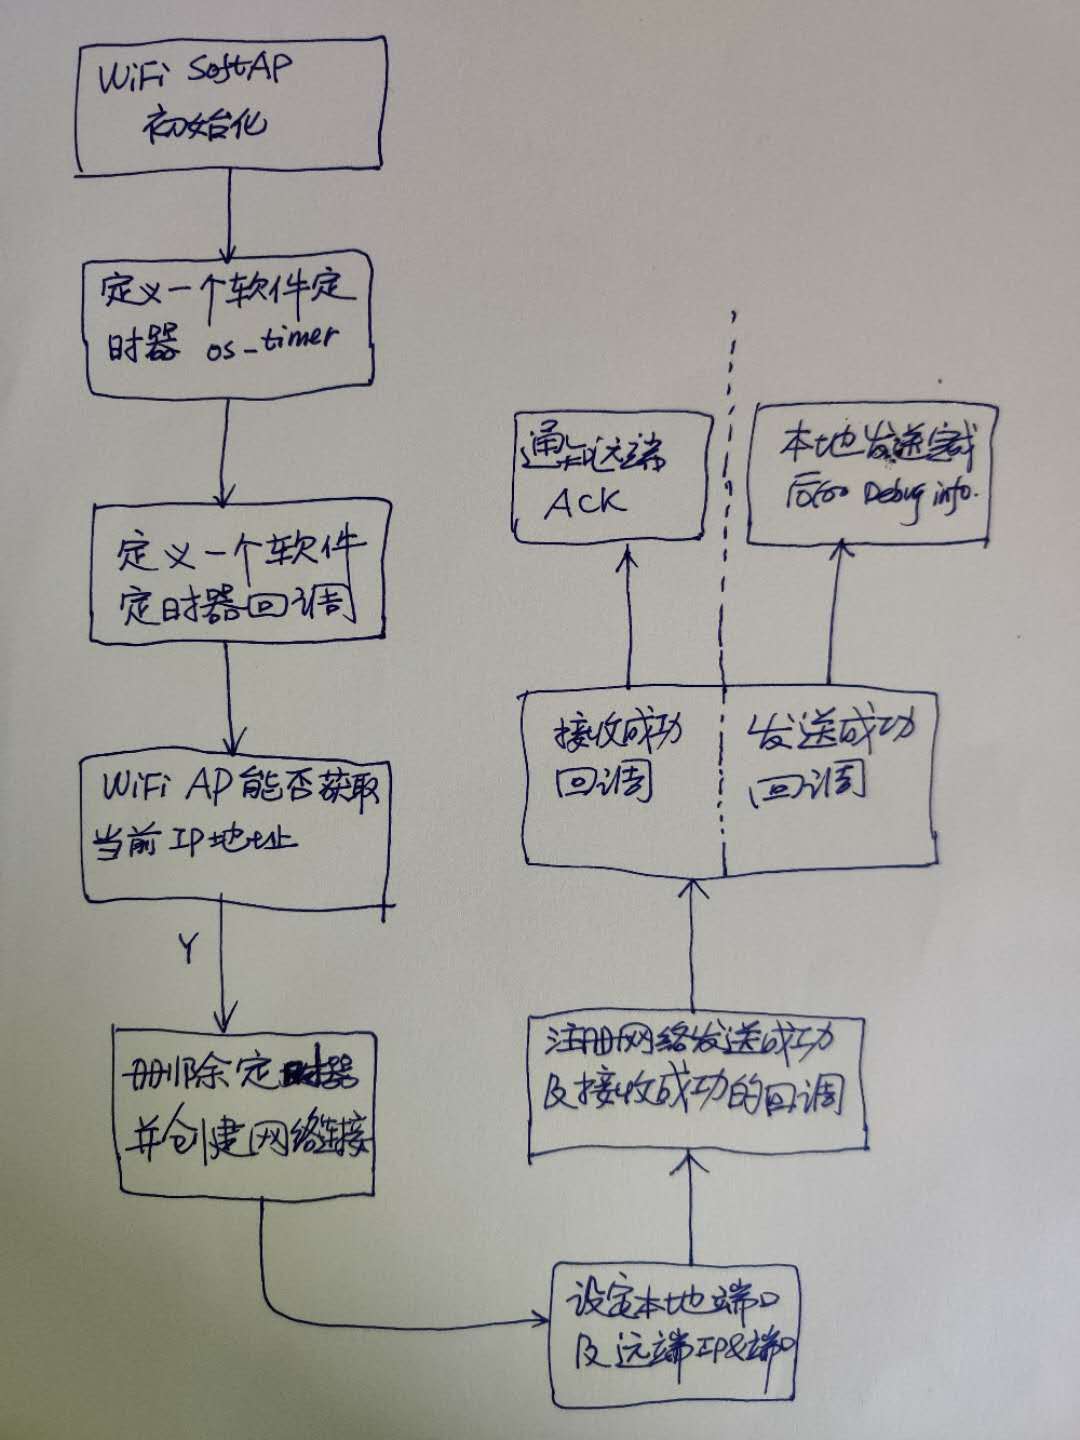 WiFi SoftAP
初始化
定义一个软件定
时器 os_timer
定义一个软件
定时器回调
WiFi AP能否获取
当前IP地址
Y
删除定时器
并创建网络连接
设定本地端口
及远端IP&端口
注册网络发送成功
及接收成功的回调
接收成功
回调
发送成功
回调
通知远端
ACK
本地发送完成
后 Debug info.